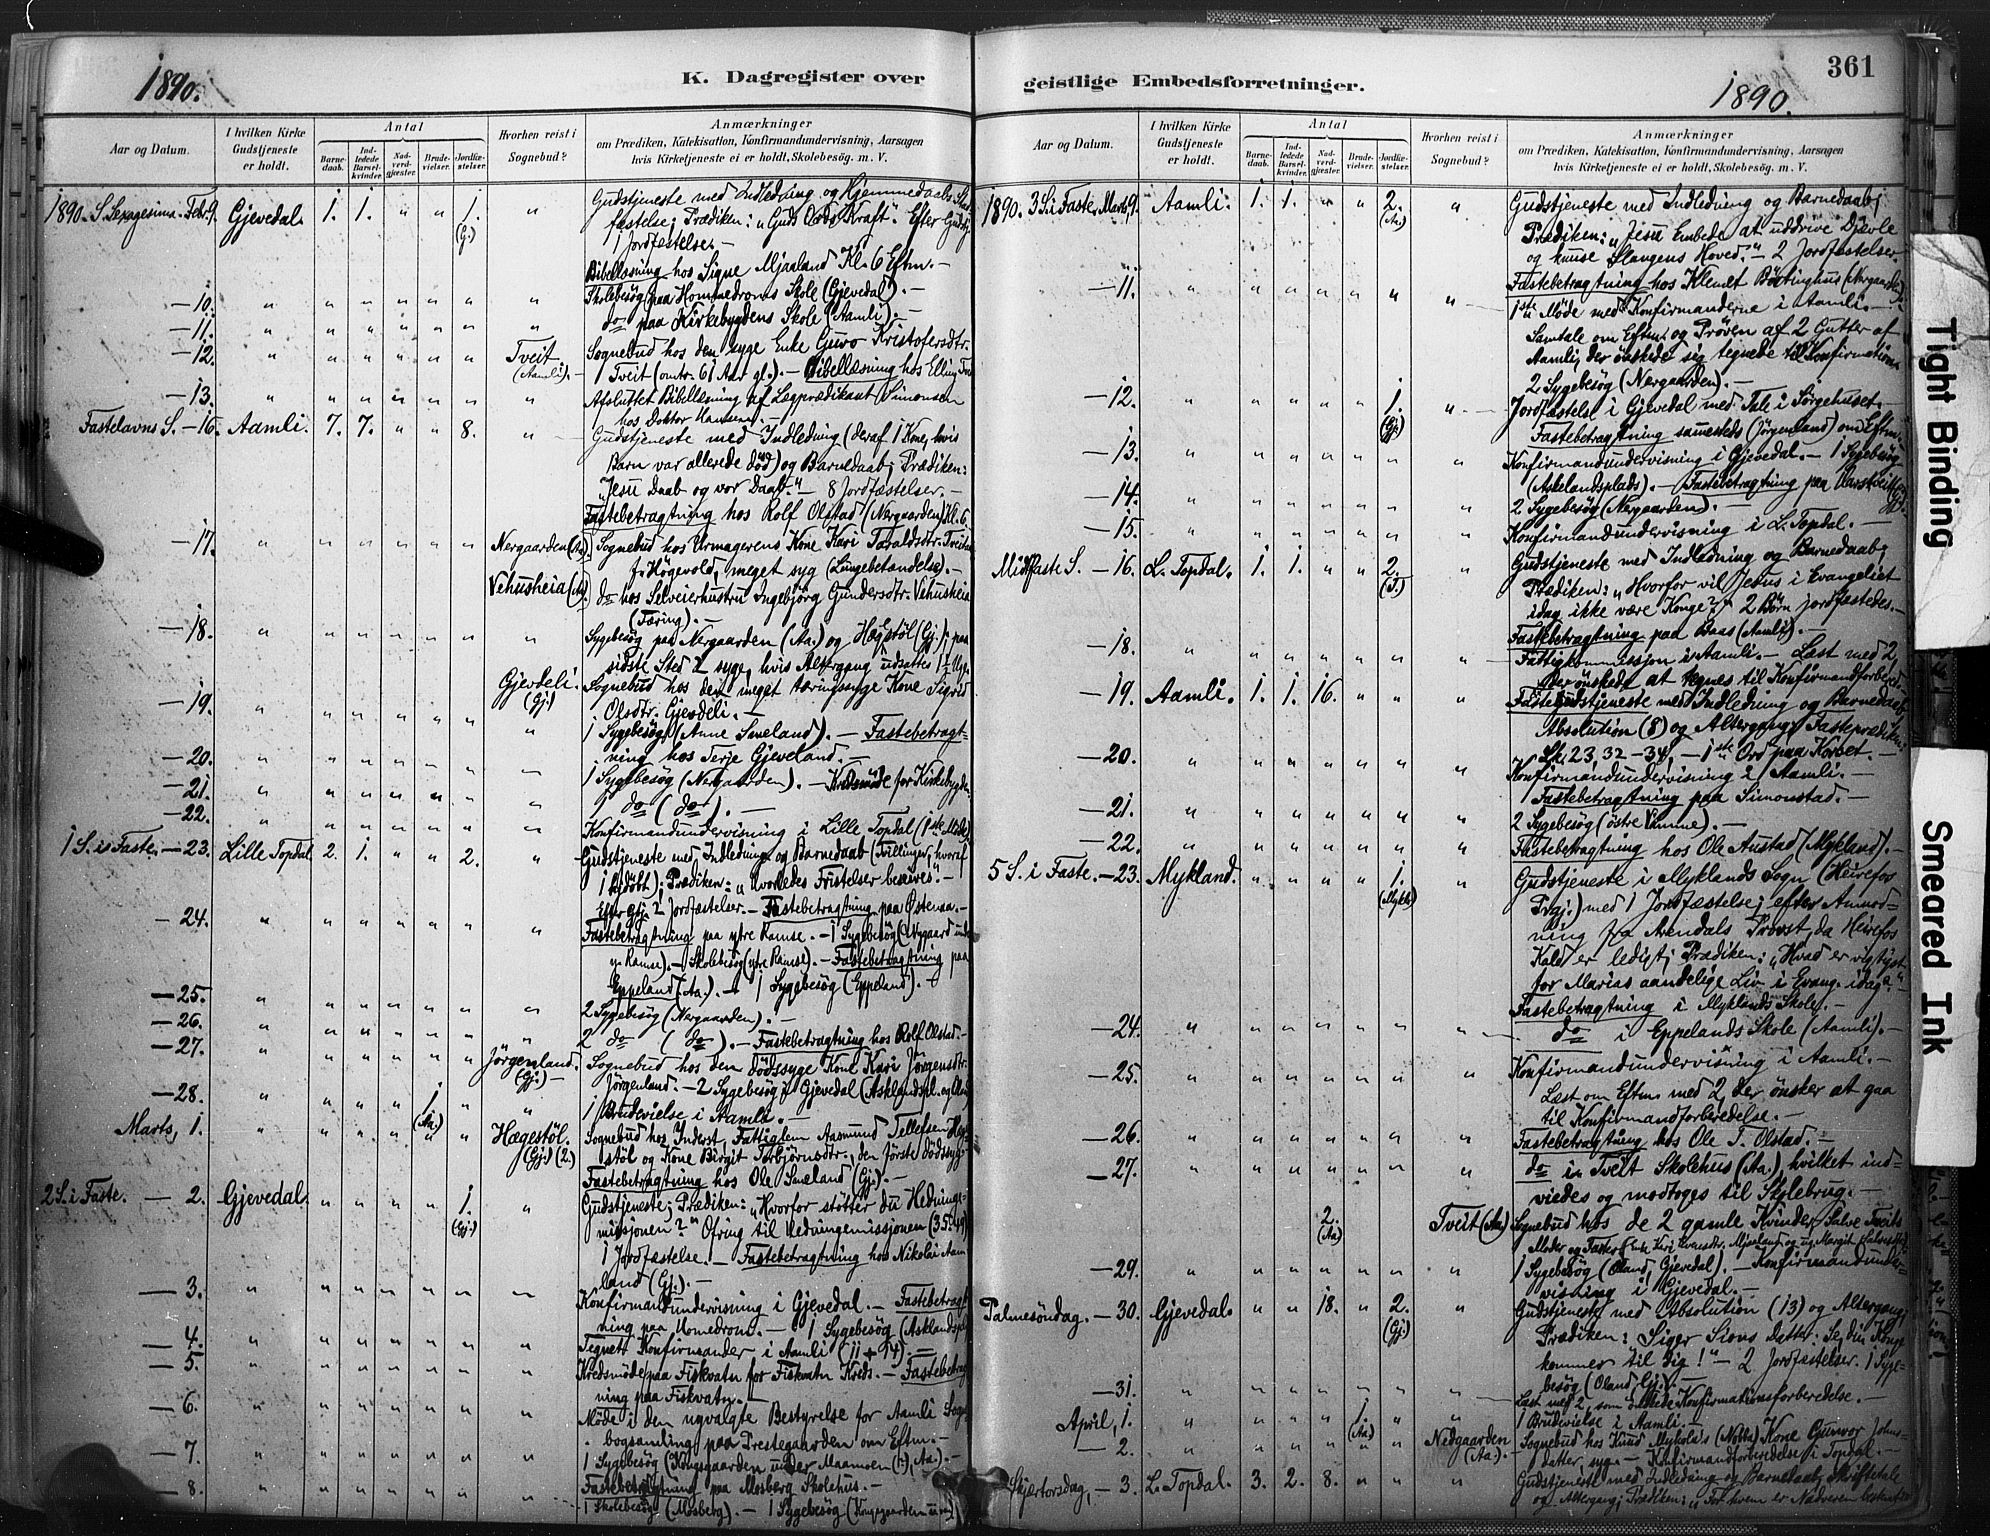 1890.
K. Dagregister over
Aar og Datum.
I hvilken Kirke Gudstjeneste er holdt.
Antal
Barnedaab.
Indledede Barselkvinder.
Nadverdgjæster.
Brudevielser.
Jordfæstelser.
Hvorhen reist i Sognebud?
Anmærkninger
om Prædiken, Katekisation, Konfirmandundervisning, Aarsagen
hvis Kirketjeneste ei er holdt, Skolebesøg. m. V.
1890. S. Sexagesima. Febr. 9. Gjevedal. 1. 1. " " 1. (G.) " Gudstjeneste med Indledning og Hjemmedaabs Stad-
fæstelse; Prædiken: "Guds Ords Kraft." Efter Gudstj.
1 Jordfæstelse. —
Bibellæsning hos Signe Mjaaland Kl. 6 Eftm. —
— 10. " " " " " " " Skolebesøg paa Hommedroms Skole (Gjevedal). —
— 11. " " " " " " " do paa Kirkebygdens Skole (Aamli). —
— 12. " " " " " " Tveit (Aamli). — Sognebud hos den syge Enke Guro Kristofersdtr.
Tveit (omtr. 61 Aar gl.). — Bibellæsning hos Elling
— 13. " " " " " " " Afsluttet Bibellæsning af Lægprædikant Simonsen
hos Doktor Hansen. —
Fastelavns S. — 16. Aamli. 7. 7. " " 8. " Gudstjeneste med Indledning (deraf 1 Kone, hvis
Barn var allerede død) og Barnedaab; Prædiken:
"Jesu Daab og vor Daab." — 8 Jordfæstelser. —
Fastebetragtning hos Rolf Olstad (Nergaarden) Kl. 6.
— 17. " " " " " " Nergaarden (Aa). Sognebud hos Urmagerens Kone Kari Taraldsdtr.
f. Høgevold, meget syg (Lungebetændelse). —
Vehusheia (Aa). do hos Selveierhustru Ingebjørg Gundersdtr. Vehusheia
(Tæring). —
— 18. " " " " " " " Sygebesøg paa Nergaarden (Aa.) og Hægestøl (Gj.); paa
sidste Sted 2 syge, hvis Altergang udsattes
Gjevdeli. (Gj.) Sognebud hos den meget tæringssyge Kone Sigrid
Olsdtr. Gjevdeli. —
— 19. " " " " " " " 1 Sygebesøg (Anne Smeland). — Fastebetragt-
ning hos Terje Gjeveland. —
— 20. " " " " " " " 1 Sygebesøg (Nergaarden). — Kredsmøde for Kirkebygden.
— 21. " " " " " " " 1 do (do). —
— 22. " " " " " " " Konfirmandundervisning i Lille Topdal (1ste Møde).
1 S. i Faste. — 23. Lille Topdal. 2. 1. " " 2. " Gudstjeneste med Indledning og Barnedaab (Tvillinger, hvoraf
1 hjdøbt); Prædiken: "Hvorledes Fristelser beseires." —
Efter Gtj. 2 Jordfæstelser. — Fastebetragtning paa Østenaa. —
— 24. " " " " " " " Fastebetragtning paa ytre Ramse. — 1 Sygebesøg (Nygaard under
y. Ramse). — Skolebesøg (ytre Ramse). — Fastebetragtning paa
Eppeland (Aa.). — 1 Sygebesøg (Eppeland). —
— 25. " " " " " " " 2 Sygebesøg (Nergaarden). —
— 26. " " " " " " " 2 do (do). — Fastebetragtning hos Rolf Olstad. —
— 27. " " " " " " Jørgenland. (Gj.) — Sognebud hos den dødssyge Kone Kari Jørgensdtr.
Jørgenland. — 2 Sygebesøg i Gjevedal (Asklandspl. og Oland)
— 28. " " " " 1. (Aa.) " " 1 Brudevielse i Aamli. —
Marts, 1. " " " " " " Hægestøl. (Gj.) (2.) Sognebud hos Inderst, Fattiglem Aasmund Tellefsen Hæge-
støl og Kone Birgit Torbjørnsdtr., den første dødssyg. —
Fastebetragtning hos Ole Smeland (Gj.). —
2 S. i Faste. — 2. Gjevedal. " " " " 1. (Gj.) " Gudstjeneste; Prædiken: "Hvorfor støtter du Hedninge-
missjonen?" Ofring til Hedningemissjonen (35.49)
1 Jordfæstelse. — Fastebetragtning hos Nikolai Aam-
land (Gj.). —
— 3. " " " " " " " Konfirmandundervisning i Gjevedal. — Fastebetragt-
ning paa Homedrom. — 1 Sygebesøg (Asklandspl.)
— 4. " " " " " " " Tegnet Konfirmander i Aamli (11 + 14). —
— 5 " " " " " " " Kredsmøde paa Fiskvatn for Fiskvatn Kreds. — Fastebetragt-
ning paa Fiskvatn. —
— 6. " " " " " " " Møde i den nyvalgte Bestyrelse for Aamli Sogne-
bogsamling paa Prestegaarden om Eftm. —
— 7 " " " " " " " 1 Sygebesøg (Kongsgaarden under Maamoen, Aa.). —
— 8. " " " " " " " Fastebetragtning paa Mosberg Skolehus. —
1 Skolebesøg (Mosberg). — 1 Sygebesøg (Kongsgaarden
361
geistlige Embedsforretninger.
1890.
Aar og Datum.
I hvilken Kirke Gudstjeneste er holdt.
Antal
Barnedaab.
Indledede Barselkvinder.
Nadverdgjæster.
Brudevielser.
Jordfæstelser.
Hvorhen reist i Sognebud?
Anmærkninger
om Prædiken, Katekisation, Konfirmandundervisning, Aarsagen
hvis Kirketjeneste ei er holdt, Skolebesøg. m. V.
1890. 3 S. i Faste, Marts, 9. Aamli. 1. 1. " " 2. (Aa.) " Gudstjeneste med Indledning og Barnedaab;
Prædiken: "Jesu Embede at uddrive Djævle
og knuse Slangens Hoved." — 2 Jordfæstelser.
Fastebetragtning hos Klemet Bøttinghus (Nergaarden)
— 11. " " " " " " " 1ste Møde med Konfirmanderne i Aamli. —
Samtale om Eftm. og Prøven af 2 Gutter af
Aamli, der ønskede sig tegnede til Konfirmation.
2 Sygebesøg (Nergaarden). —
— 12. " " " " " 1. (Gj.) " Jordfæstelse i Gjevedal med Tale i Sørgehuset. —
Fastebetragtning sammesteds (Jørgenland) om Eftm. —
— 13. " " " " " " " Konfirmandundervisning i Gjevedal. — 1 Sygebesøg
(Askelandsplads). — Fastebetragtning paa
— 14. " " " " " " " 2 Sygebesøg (Nergaarden). —
— 15. " " " " " " " Konfirmandundervisning i L. Topdal. —
Midfaste S. — 16. L. Topdal. 1. 1. " " 2. (T.) " Gudstjeneste med Indledning og Barnedaab;
Prædiken: "Hvorfor vil Jesus i Evangeliet
idag ikke være Konge?" 2 Børn jordfæstedes. —
Fastebetragtning paa Baas (Aamli). —
— 18. " " " " " " " Fattigkommissjon i Aamli. — Læst med 2,
der ønskede at tegnes til Konfirmandforbered.
— 19. Aamli. 1. 1. 16. " " " Fastegudstjeneste med Indledning og Barnedaab,
Absolution (8) og Altergang; Fasteprædiken:
Lk. 23, 32 – 34, — 1ste Ord paa Korset. —
— 20. " " " " " " " Konfirmandundervisning i Aamli. —
Fastebetragtning paa Simonstad. —
— 21. " " " " " " " 2 Sygebesøg (østre Vimme). —
— 22. " " " " " " " Fastebetragtning hos Ole Austad (Mykland). —
5 S. i Faste. — 23. Mykland. " " " " 1. (Mykl.) " Gudstjeneste i Myklands Sogn (Heirefos
Prgj.) med 1 Jordfæstelse; efter Anmod-
ning fra Arendals Provst, da Heirefos
Kald er ledigt; Prædiken: "Hvad er vigtigst
for Marias aandelige Liv i Evang. idag?" —
Fastebetragtning i Myklands Skole. —
— 24. " " " " " " " do i Eppelands Skole (Aamli). —
— 25. " " " " " " " Konfirmandundervisning i Aamli. —
Læst om Eftm. med 2, der ønsker at gaa
til Konfirmandforberedelse. —
— 26. " " " " " " " Fastebetragtning hos Ole T. Olstad. —
— 27. " " " " " " " do i Tveit Skolehus (Aa.) hvilket ind-
viedes og modtoges til Skolebrug. —
2. (Aa) Tveit (Aa.) Sognebud hos de 2 gamle Kvinder, Salve Tveits
Moder og Faster (Enke Kari Evensdtr. Mjaaland og ug. Margit
— 29. " " " " " " " 1 Sygebesøg (Oland, Gjevedal). — Konfirmandunder-
visning i Gjevedal. —
Palmesøndag. — 30. Gjevedal. " " 18. " 2. (Gj.) " Gudstjeneste med Absolution (13) og Altergang;
Prædiken: Siger Sions Datter: Se, din Konge
kommer til dig!" — 2 Jordfæstelser. 1 Syge-
besøg (Oland, Gj.). —
— 31. " " " " " " " Læst med 2, som Konfirmationsforberedelse. —
April, 1. " " " " 1. (Aa) " " 1 Brudevielse i Aamli. —
— 2. " " " " " " Nedgaarden (Aa.) Sognebud hos Knud Mykola's (Nobbs) Kone Gunvor Johns-
datter, syg. — Konfirmandforberedelse i Topdal. —
Skjærtorsdag, — 3. L. Topdal. 3. 2. 8. " " " Gudstjeneste med Indledning og Barnedaab, Skriftetale
og Altergang; Prædiken: "For hvem er Nadveren
Tight Binding
Smeared Ink